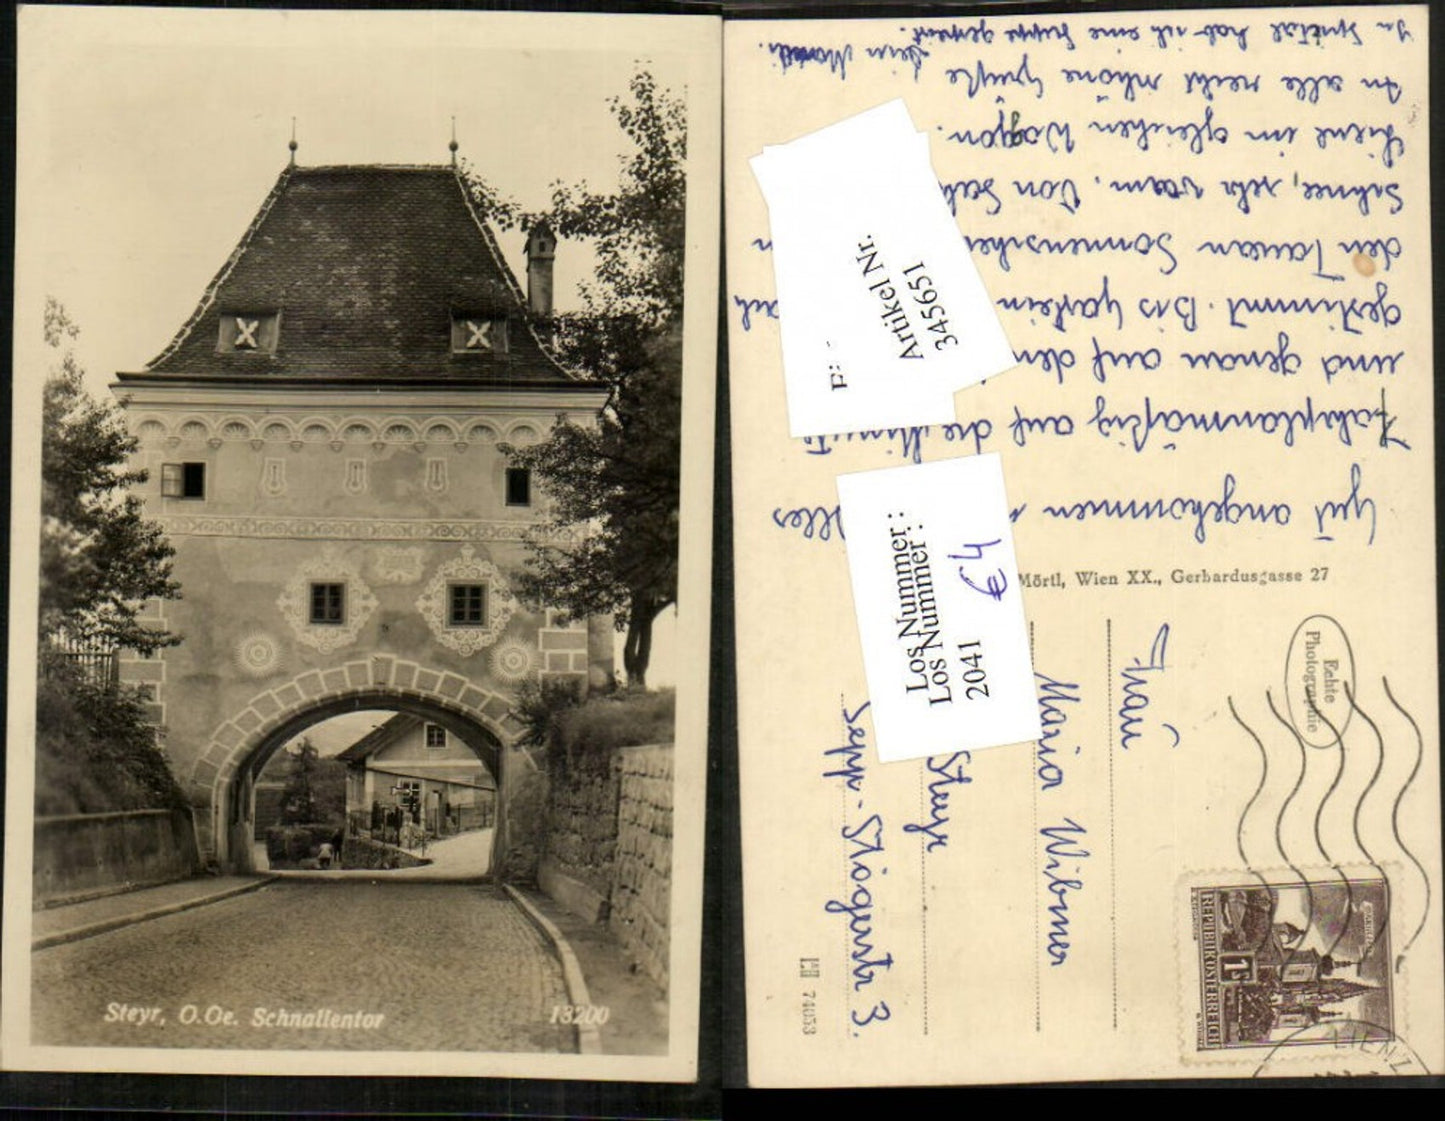 Steyr, O.Oe. Schnallentor
13200
Gut angekommen Alles
Fahrplanmäßig auf die Minute
und genau auf den
gestimmt. Bis Gastein
den Tauern Sonnenschein
Schnee, sehr warm. Von
Liene im gleichen Waggon.
An alle recht schöne Grüße
In Spittal hab ich eine Suppe gegessen.
Artikel Nr.
345651
Los Nummer :
Los Nummer :
2041
4,-€
Mörtl, Wien XX., Gerhardusgasse 27
Echte
Photographie
Frau
Maria Wibmer
Steyr
Sepp-Stögerstr 3.
74053
REPUBLIK ÖSTERREICH
1S
LIENZ